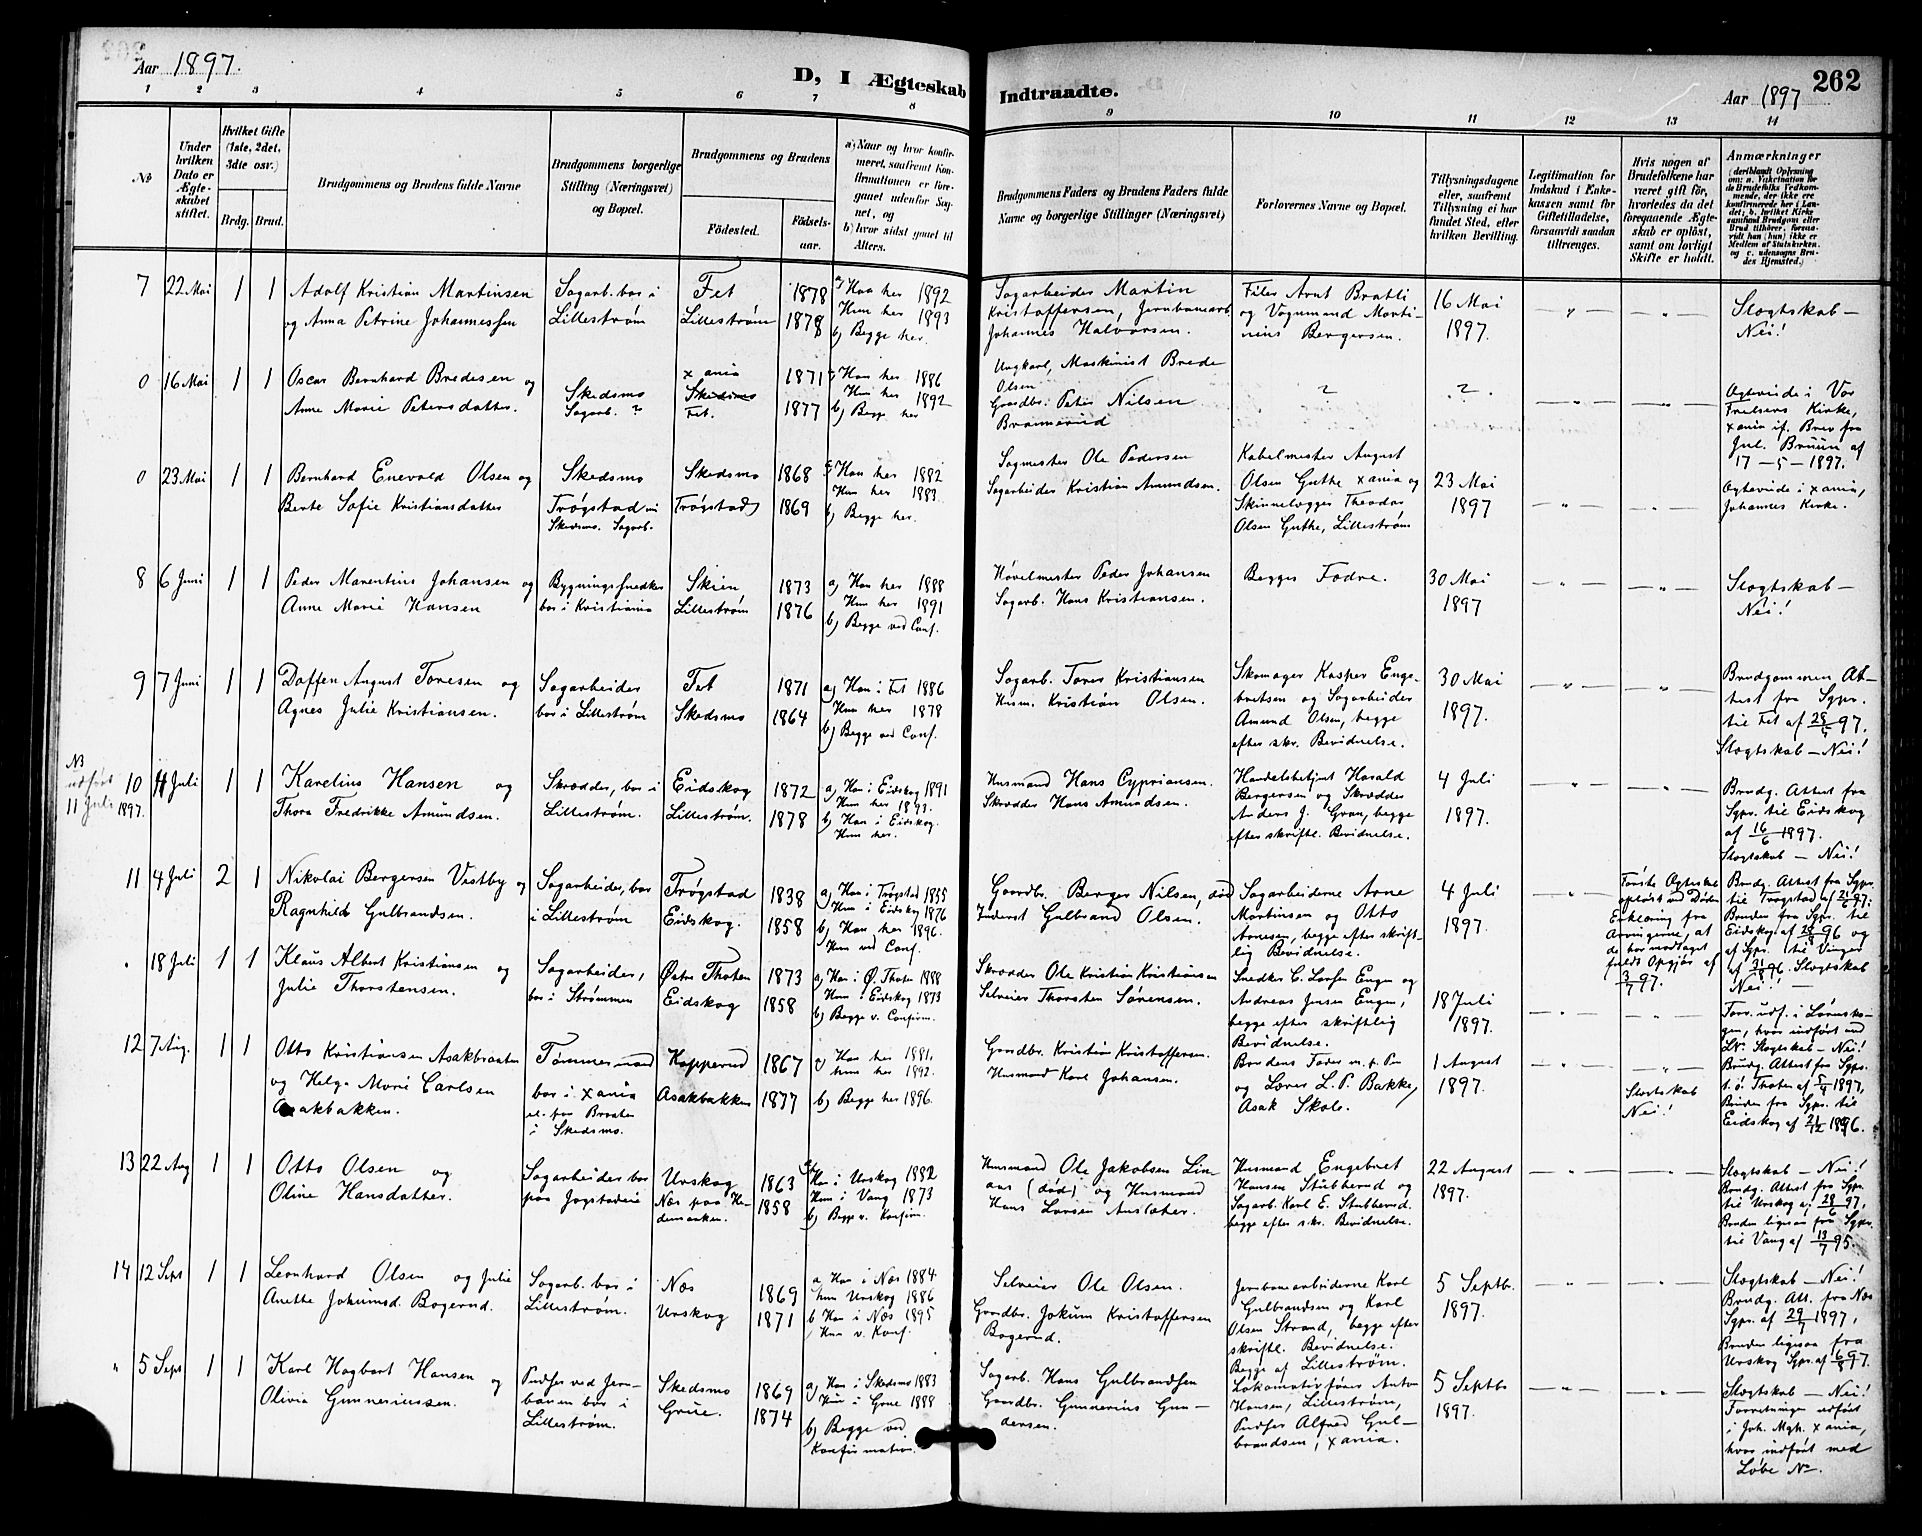 Aar 1897.
D, I Ægteskab Indtraadte.
Aar 1897
262
1 2 3 4 5 6 7 8 9 10 11 12 13 14
No
Under hvilken Dato er Ægteskabet stiftet.
Hvilket Gifte (1ste, 2det, 3die osv.)
Brdg. Brud.
Brudgommens og Brudens fulde Navne
Brudgommens borgerlige Stilling (Næringsvei) og Bopæl.
Brudgommens og Brudens
Födested.
Födselsaar.
a) Naar og hvor konfirmeret, saafremt Konfirmationen er foregaaet udenfor Sognet, og
b) hvor sidst gaaet til Alters.
Brudgommens Faders og Brudens Faders fulde Navne og borgerlige Stillinger (Næringsvei)
Forlovernes Navne og Bopæl.
Tillysningsdagene eller, saafremt Tillysning ei har fundet Sted, efter hvilken Bevilling.
Legitimation for Indskud i Enkekassen samt for Giftetilladelse, forsaavidt saadan tiltrænges.
Hvis nogen af Brudefolkene har været gift før, hvorledes da det foregaaende Ægteskab er oplöst, samt om lovligt Skifte er holdt.
Anmærkninger
7 22 Mai 1 1 Adolf Kristian Martinsen
og Anna Petrine Johannessen
Sagarb. bor i
Lillestrøm
Fet 1878
Lillestrøm 1878
a) Han her 1892
Hun her 1893
b) Begge her.
Sagarbeider Martin
Kristoffersen, Jernbanearb.
Johannes Halvorsen.
Filer Arnt Bratli
og Vognmand Marti-
nius Bergersen.
16 Mai
1897.
Slægtskab —
Nei!
0 16 Mai 1 1 Oscar Bernhard Bredesen og
Anne Marie Petersdatter.
Skedsmo
Sagarb. ?
xania 1871
Skedsmo
Fet. 1877
a) Han her 1886
Hun her 1892
b) Begge her
Ungkarl, Maskinist Brede
Olsen
Gaardbr. Peter Nilsen
Brannerud
?
?
Ægteviede i Vor
Frelsers Kirke,
xania if. Brev fra
Jul. Bruun af
17-5-1897.
0 23 Mai 1 1 Bernhard Enevald Olsen og
Berte Sofie Kristiansdatter
Skedsmo
Trøgstad
Skedsmo. Sagarb.
Skedsmo 1868
Trøgstad 1869
a) Han her 1882
Hun her 1883.
b) Begge her.
Sagmester Ole Pedersen
Sagarbeider Kristian Amundsen.
Kabelmester August
Olsen Guthe xania og
Skinnelægger Theodor
Olsen Guthe, Lillestrøm
23 Mai
1897
Ægteviede i xania,
Johannes Kirke.
8 6 Juni 1 1 Peder Marentius Johansen og
Anne Marie Hansen
Bygningssnedker
bor i Kristiania
Skien 1873
Lillestrøm 1876
a) Han her 1888
Hun her 1891
b) Begge ved Conf.
Høvelmester Peder Johansen
Sagarb. Hans Kristiansen.
Begges Fædre.
30 Mai
1897
Slægtskab —
Nei!
9 7 Juni 1 1 Daffen August Toresen og
Agnes Julie Kristiansen.
Sagarbeider
bor i Lillestrøm
Fet 1871
Skedsmo 1864
a) Han i Fet 1886
Hun her 1878
b) Begge ved Conf.
Sagarb. Torer Kristiansen
Husm. Kristian Olsen.
Skomager Kasper Enge-
bretsen og Sagarbeider
Amund Olsen, begge
efter skr. Bevidnelse.
30 Mai
1897.
Brudgommen At-
test fra Sgpr.
til Fet af 28/5 97.
Slægtskab — Nei!
NB
udført
11 Juli 1897.
10 11 Juli 1 1 Karelius Hansen og
Thora Fredrikke Amundsen.
Skrædder, bor i
Lillestrøm.
Eidskog 1872
Lillestrøm. 1878
a) Han i Eidskog 1891
Hun her 1893.
b) Han i Eidskog.
Hun her.
Husmand Hans Cyprianсen.
Skrædder Hans Amundsen.
Handelsbetjent Harald
Bergersen og Skrædder
Anders J. Gran, begge
efter skriftl. Bevidnelse.
4 Juli
1897.
Brudg. Attest fra
Sgpr. til Eidskog
af 16/6 1897.
Slægtskab — Nei!
11 4 Juli 2 1 Nikolai Bergersen Vestby og
Ragnhild Gulbrandsen.
Sagarbeider, bor
i Lillestrøm
Trøgstad 1838
Eidskog. 1858
a) Han i Trøgstad 1855
Hun i Eidskog 1876
b) Han her 1896.
Hun ved Conf.
Gaardbr. Berger Nilsen, død
Inderst Gulbrand Olsen.
Sagarbeiderne Arne
Martinsen og Otto
Arnesen, begge efter skrift-
lig Bevidnelse.
4 Juli
1897.
Første Ægteskab
opløst ved Døden
Erklæring fra
Arvingerne, at
de har modtaget
fuldt Opgjør af
3/7 97.
Brudg. Attest fra Sgpr.
til Trøgstad af 21/6 97.
Bruden fra Sgpr. til
Eidskog af 28/9 96 og
af Sgpr. til Vinger
af 31/8 96. Slægtskab
Nei! —
18 Juli 1 1 Klaus Albert Kristiansen og
Julie Thorstensen.
Sagarbeider,
bor i Strømmen
Østre Thoten 1873
Eidskog 1858
a) Han i Ø. Thoten 1888
Hun i Eidskog 1873
b) Begge v. Confirm.
Skrædder Ole Kristian Kristiansen
Selveier Thorsten Sørensen.
Snedker C. Larsen Engen og
Andreas Jensen Engen,
begge efter skriftlig
Bevidnelse.
18 Juli
1897.
Forr. udf. i Lørensko-
gen, hvor indført med
LNo. Slægtskab — Nei!
Brudg. Attest fra Sgpr.
t. ø. Thoten af 5/4 1897,
Bruden fra Sgpr. til
Eidskog af 21/2 1896.
12 7 Aug. 1 1 Otto Kristiansen Asakbraaten
og Helga Marie Carlsen
Asakbakken.
Tømmermand
bor i xania
el. paa Braaten
i Skedsmo.
Kopperud 1867
Asakbakken 1877
a) Han her 1881.
hun her 1892.
b) Begge her 1896.
Gaardbr. Kristian Kristoffersen.
Husmand Karl Johansen.
Brudens Fader
og Lærer L. P. Bakke,
Asak Skole.
1 August
1897.
Slægtskab
Nei!
13 22 Aug 1 1 Otto Olsen og
Oline Hansdatter.
Sagarbeider bor
paa Jogstadeie
Urskog 1863
Næs paa He-
demarken. 1858
a) Han i Urskog 1882
Hun i Vang 1873
b) Begge v. Konfirm.
Husmand Ole Jakobsen Lin-
aas (død) og Husmand
Hans Larsen
Husmand Engebret
Hansen Stubberud og
Sagarb. Karl E. Stubberud,
begge efter skr. Bevidnelse.
22 August
1897.
Slægtskab — Nei!
Brudg. Attest fra Sgpr.
til Urskog af 28/6 97,
Bruden ligesaa fra Sgpr.
til Vang af 13/7 95.
14 12 Sept 1 1 Leonhard Olsen og Julie
Anette Jokumsd. Bogerud.
Sagarb. bor i
Lillestrøm.
Næs 1869
Urskog 1871
a Han i Næs 1884.
hun Urskog 1886
b Han i Næs 1895
Hun v. Konf.
Selveier Ole Olsen.
Gaardbr. Jokum Kristoffersen
Bogerud.
Jernbanearbeiderne Karl
Gulbrandsen og Karl
Olsen Strand, begge efter
skriftl. Bevidnelse.
Begge af Lillestrøm.
5 Septb.
1897.
Slægtskab — Nei!
Brudg. Att. fra Næs
Sgpr. af 29/7 1897,
Bruden ligesaa fra
Urskog Sgpr. af 6/8 97.
" 5 Sept 1 1 Karl Hagbart Hansen og
Olivia Gunneriussen.
Pudser ved Jern-
banen bor i
Lillestrøm.
Skedsmo 1869
Grue. 1874
a) Han i Skedsmo 1883
Hun i Grue 1888
b) Begge ved
Konfirmation.
Sagarb. Hans Gulbrandsen
Gaardbr. Gunnerius Gun-
dersen.
Lokomotivfører Anton
Hansen, Lillestrøm,
Pudser Alfred Gul-
brandsen, xania.
5 Septb
1897.
Slægtskab — Nei!
Forretningen udført
i Joh. Mgh. xania,
hvor indført med
Løbe No